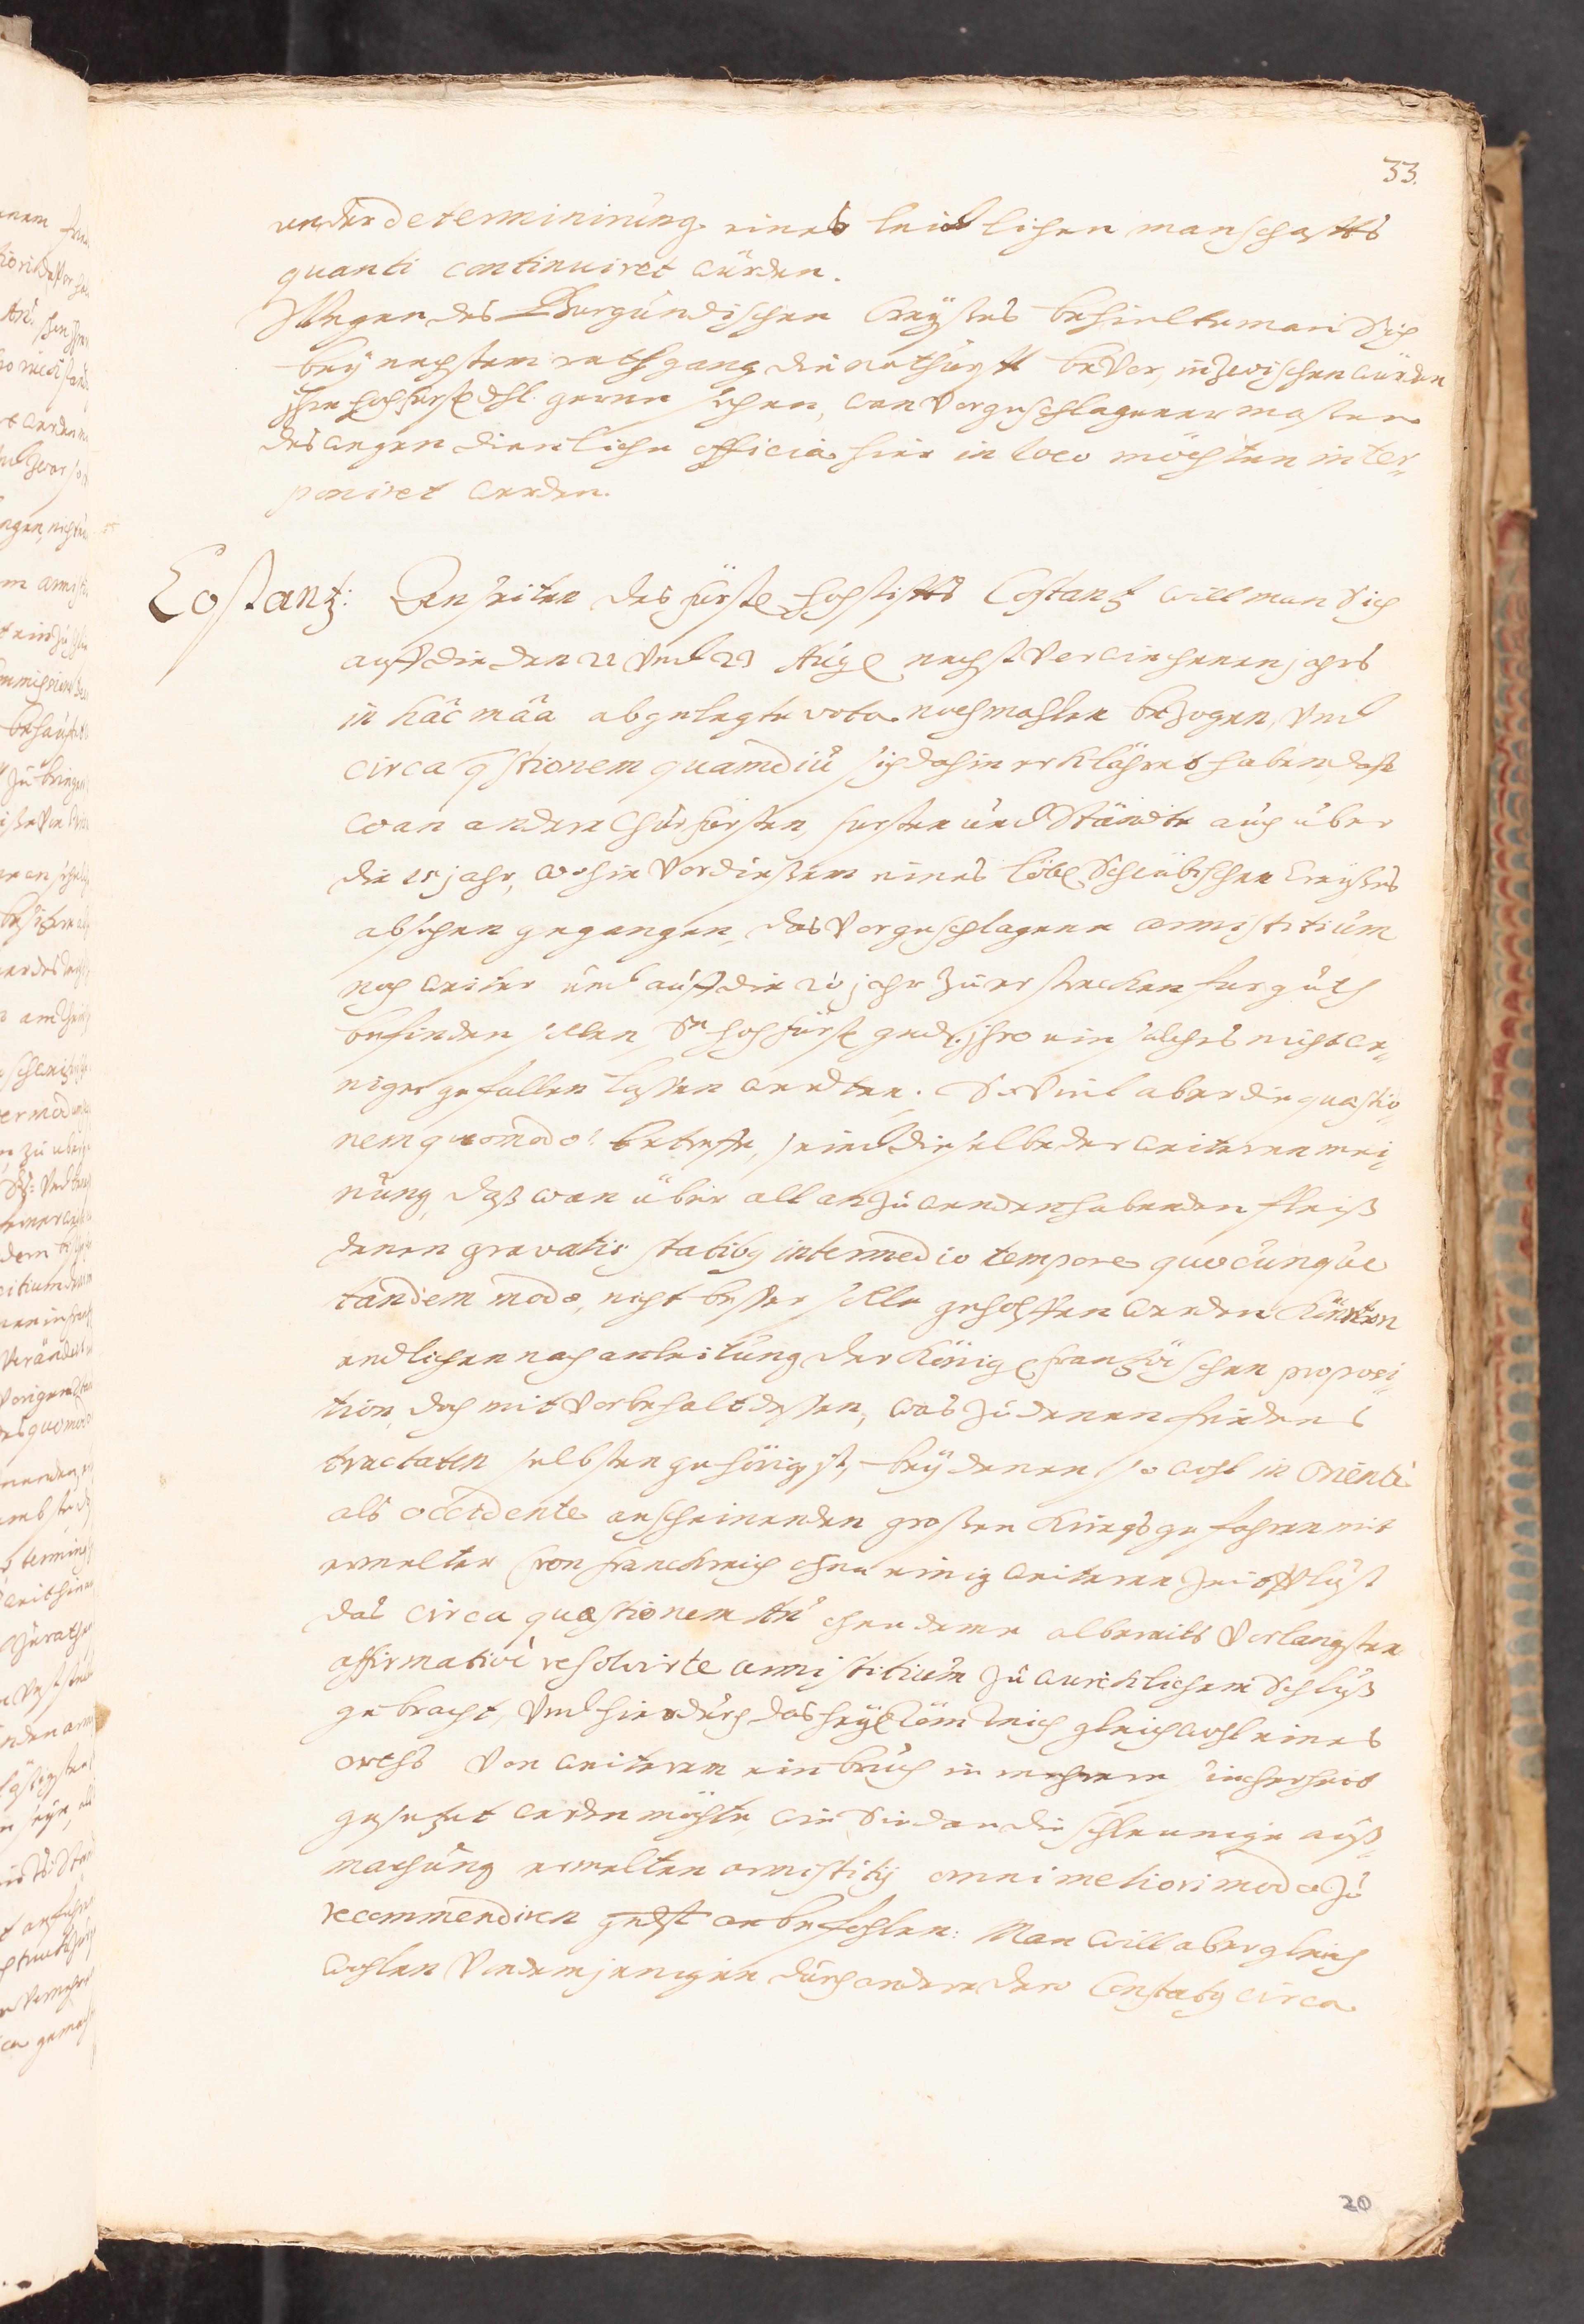 33.
under determinirung eines leidlichen manschaffts
quanti continuiret würden.
Wegen des Burgundischen Creyses behielte man sich
bey nechstem rathgang die notturfft bevor, inzwischen würden
Ihre hochfürstl dhl. gerne sehen, wan vorgeschlagener masten
deswegen dienliche officia hier in loco möchten inter-
poniret werden.
Costantz: Von seiten des fürstl hochstiffts Costantz will man sich
auff die den 22 vnd 29 Aug nechst verwichenen jahrs
in hâc mâa abgelegte vota nochmahlen bezogen, vnd
circa qstionem quamdiu sich dahin erklähret haben, dass
wan andere Churfürsten, fursten und Stände auch über
die 15 jahr, wohin vor diessem eines löbl Schwäbischen Creysses
absehen gegangen, das vorgeschlagene armistitium
noch weiter und auff die 20 jahr zu erstrecken fur guth
befinden sollen, Sr hochfürstl gnd. ihro ein solches nicht we-
niger gefallen lassen werdten. So viel aber die quæstio-
nem quomodo? betreffe, seind dieselbe der weiteren mei-
nung, daß wan über all anzuwenden habenden fleiß
denen gravatis statibq intermedio tempore quocunque
tandem modo, nicht besser solle geholffen werden können
endlichen nach anleitung der Königl französischen proposi-
tion, doch mit vorbehalt dessen, was zu denen friedens
tractaten selbsten gehörig ist, bey denen so wohl in orienti
als occidente anscheinenden grossen Kriegsgefahren mit
ermelter Cron franckreich ohne einig weiteren zeitverlust
das circa quæstionem An? ohne deme albereits vorlangsten
affirmativè resolvirte armistitium zu würcklichem Schluß
gebracht, vnd hierdurch das heyl Röm Reich gleichwohl eines
orths von weiterem einbruch in mehrere sicherheit
gesetzet werden möchte, wie Sie dan die schleunige auß-
machung ermelten armistitij omni meliori modo zu
recommendiren gndst anbefohlen: Man will aber gleich
wohlen von demjenigen durch andere dero Constatbq circa
20